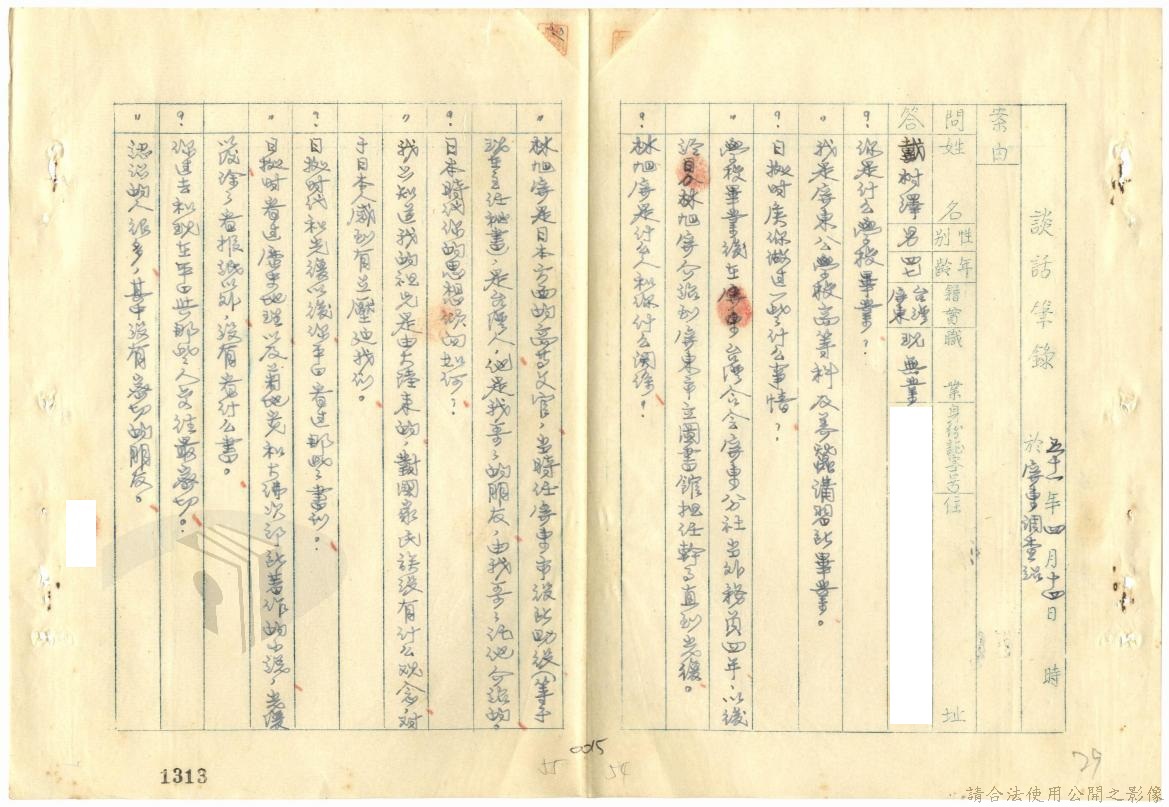 談話筆錄
五十一年四月十四日 時
於屏東調查站
案由
問姓名性別年齡籍貫職業身份証字号住址
答戴村澤男四七台灣屏東現無業
?你是什么學校畢業?
〃我是屏東公學校高等科及善鄰講習所畢業。
?日據時廣你做过一些什么事情?
〃學校畢業後在屏東台灣合会屏東分社当外務員四年,以後
經林旭屏介紹到屏東市立圖書館担任幹事直到光復。
?林旭屏是什么人和你什么関係?
〃林旭屏是日本方面的高等文官,当時任屏東市役所助役(等于
現在主任秘書),是台灣人,他是我哥哥的朋友,由我哥哥託他介紹的。
?日本時代你的思想傾向如何?
〃我只知道我的祖先是由大陸來的,對國家民族沒有什么观念,对
于日本人感到有些壓迫我们。
?日據时代和光復以後你平日看过那些書刊?
〃日據时看过歷史地理以及菊池寬和大佛次郎所著作的小說,光復
後除了看报紙以外,沒有看什么書。
?你过去和現在平日与那些人交往最密切。
〃認識的人很多,其中沒有密切的朋友。
0015
55
54
29
1313
請合法使用公開之影像